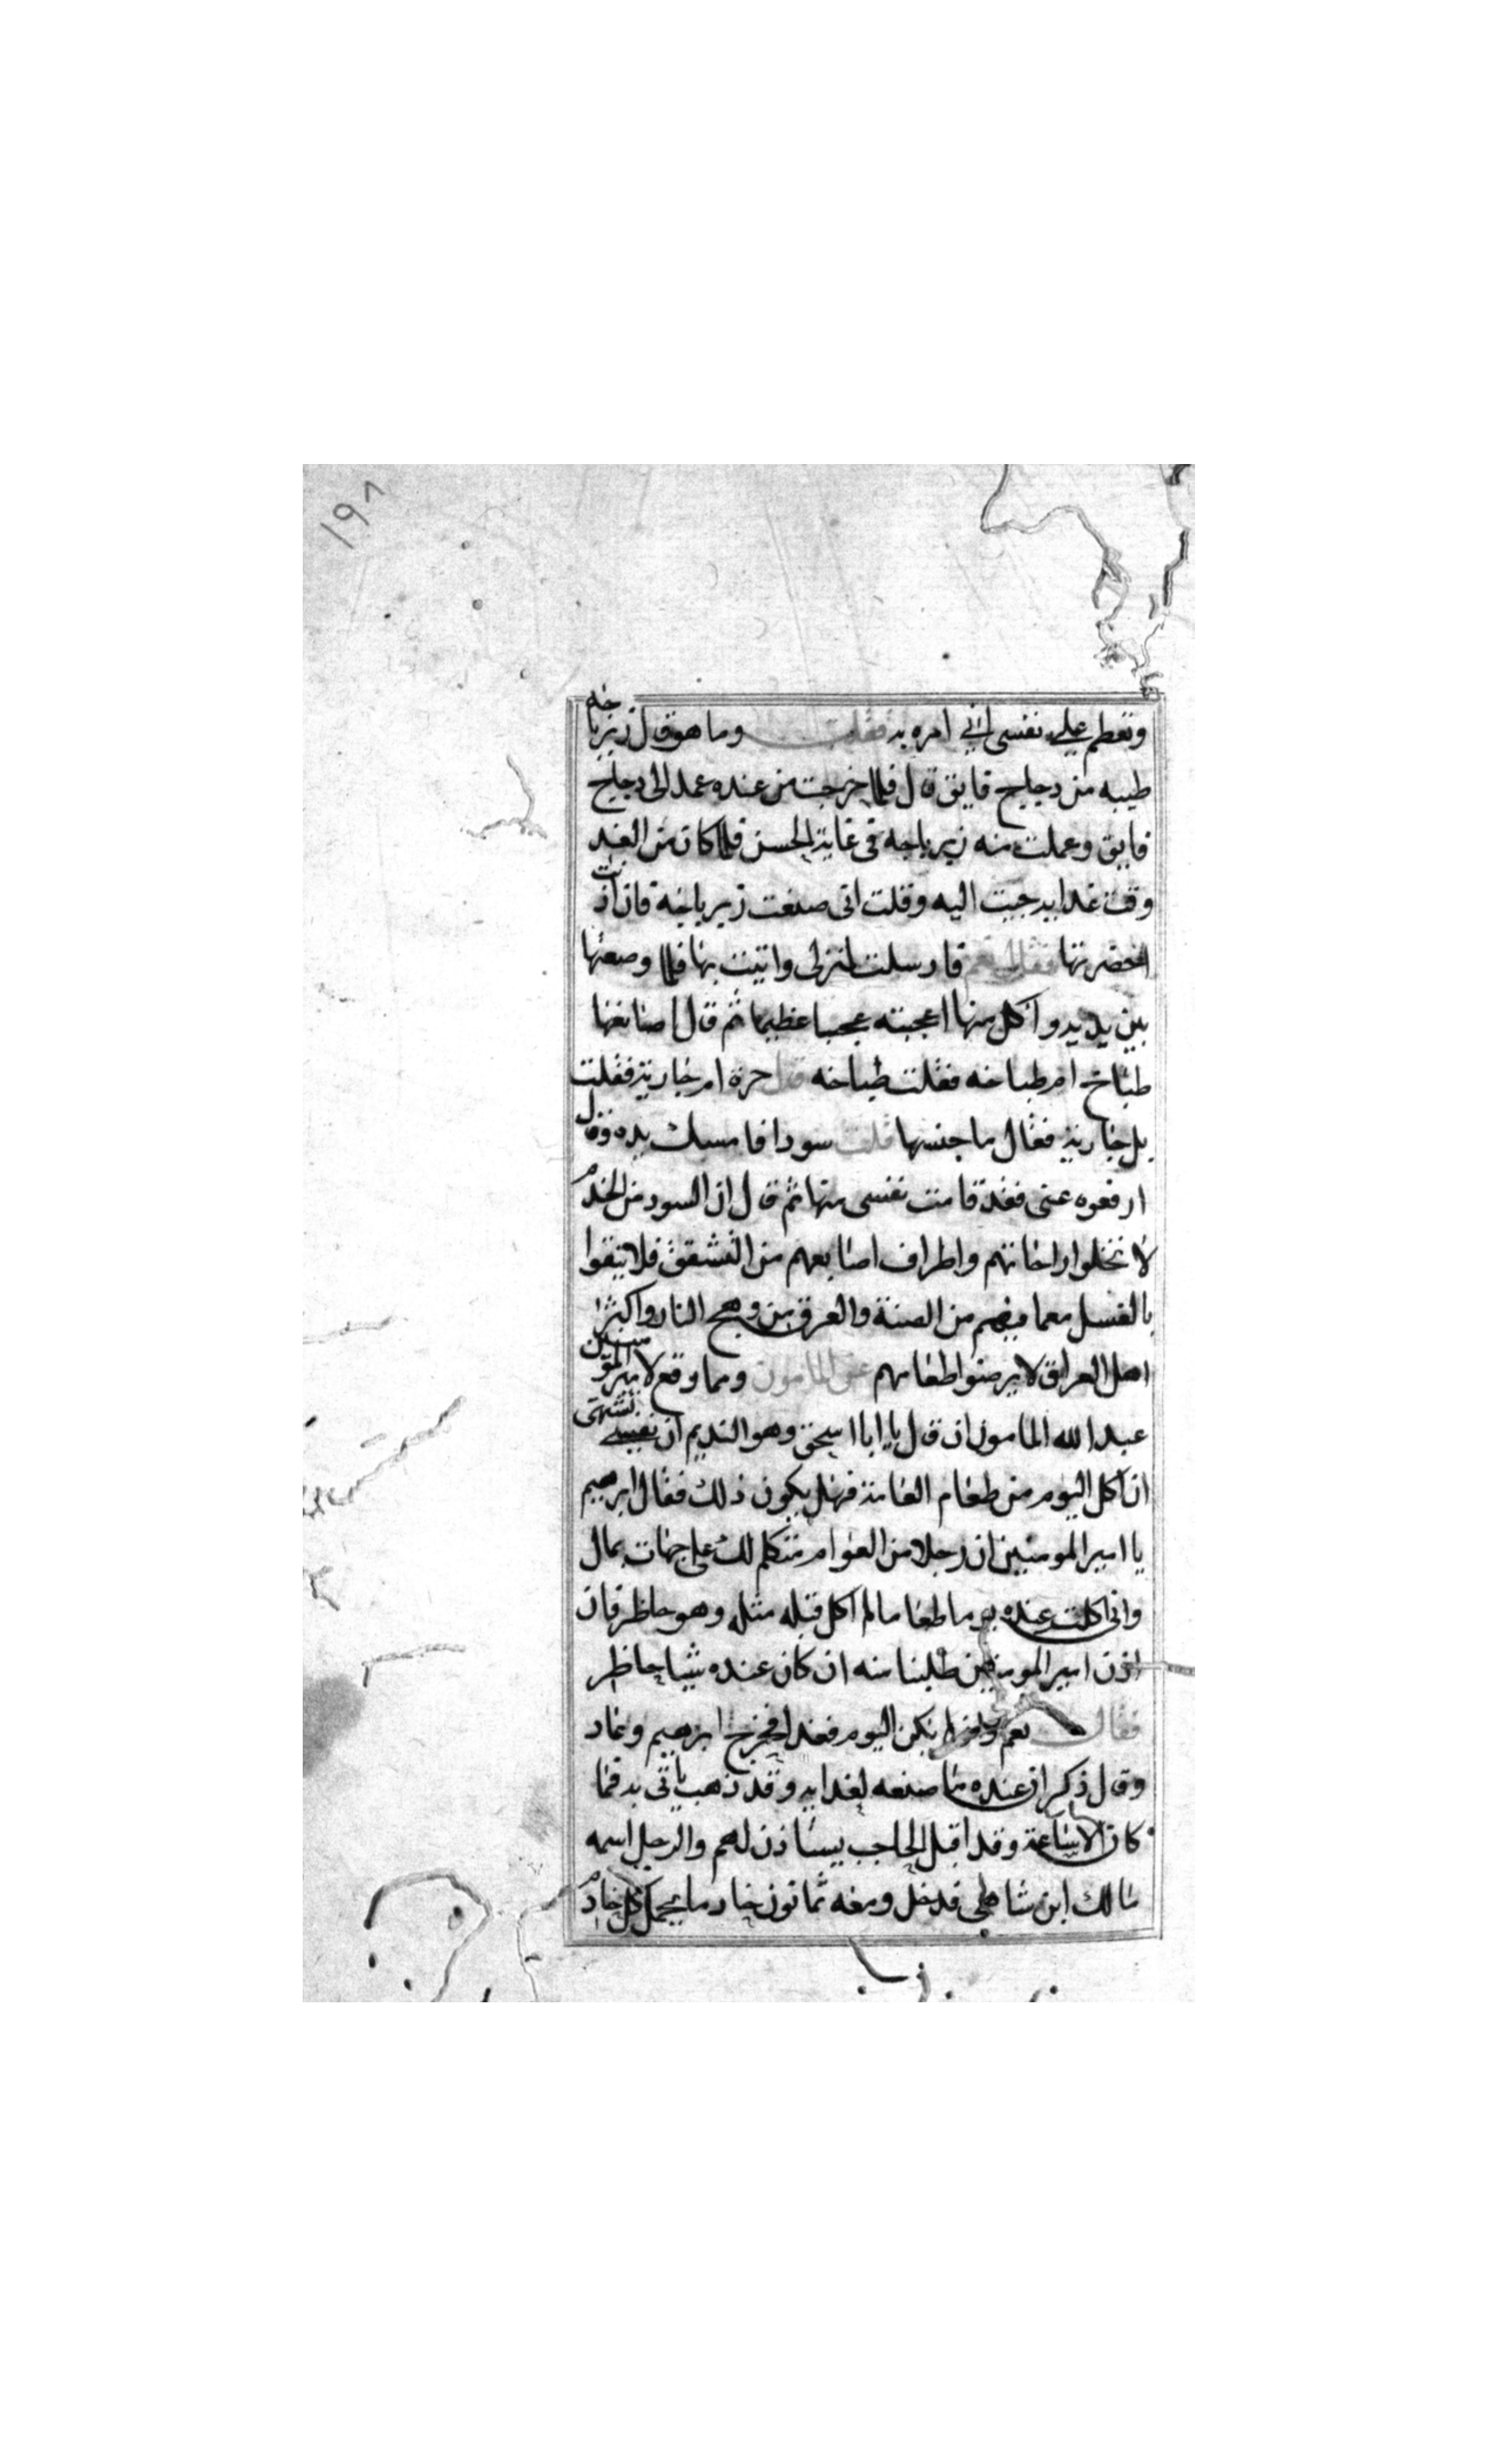 ١٩٨
وتعظم علي نفسى اني امره به فقلت وما هو قال زيرباجه
طيبه من دجاج فايق قال فلما خرجت من عنده عمد الى دجاج
فايق وعملت منه زيرباجه فى غاية الحسن فلما كان من الغد
وقت غدايه جيت اليه وقلت انى صنعت زيرباجة فان اذنت
احضرتها فقال نعم فارسلت لمنزلى واتيت بها فلما وضعتها
بين يديه واكل منها اعجبته عجبا عظيما ثم قال اصانعها
طباخ ام طباخه فقلت طباخه قال حرة ام جارية فقلت
بل جارية فقال ما جنسها قلت سودا فامسك يده وقال
ارفعوه عنى فقد قامت نفسى منها ثم قال ان السود من الخدم
لا تخلوا راحاتهم واطراف اصابعهم من التشقق فلا تنقوا
بالغسل معما فيهم من الصنة والعرق من وهج النار واكثر
اهل العراق لا يرضوا طعامهم عن المامون ومما وقع لامير المومنين
عبد الله المامون ان قال يا ابا اسحق وهو النديم ان نفسى تشتهى
ان اكل اليوم من طعام العامة فهل يكون ذلك فقال ابرهيم
يا امير المومنين ان رجلا من العوام متكلم لك على جهات بمال
وانى اكلت عنده يوما طعاما لم اكل قبله مثله وهو حاظر فان
اذن امير المومنين طلبنا منه ان كان عنده شيا حاظر
فقال نعم يكن اليوم فغدا فخرج ابرهيم وعاد
وقال ذكر ان عنده ما صنعه لغدايه وقد ذهب ياتى به فما
كان الا ساعة وقد اقبل الحاجب يستاذن لهم والرجل اسمه
مالك ابن شاهى فدخل ومعه ثمانون خادما يحمل كل خادم